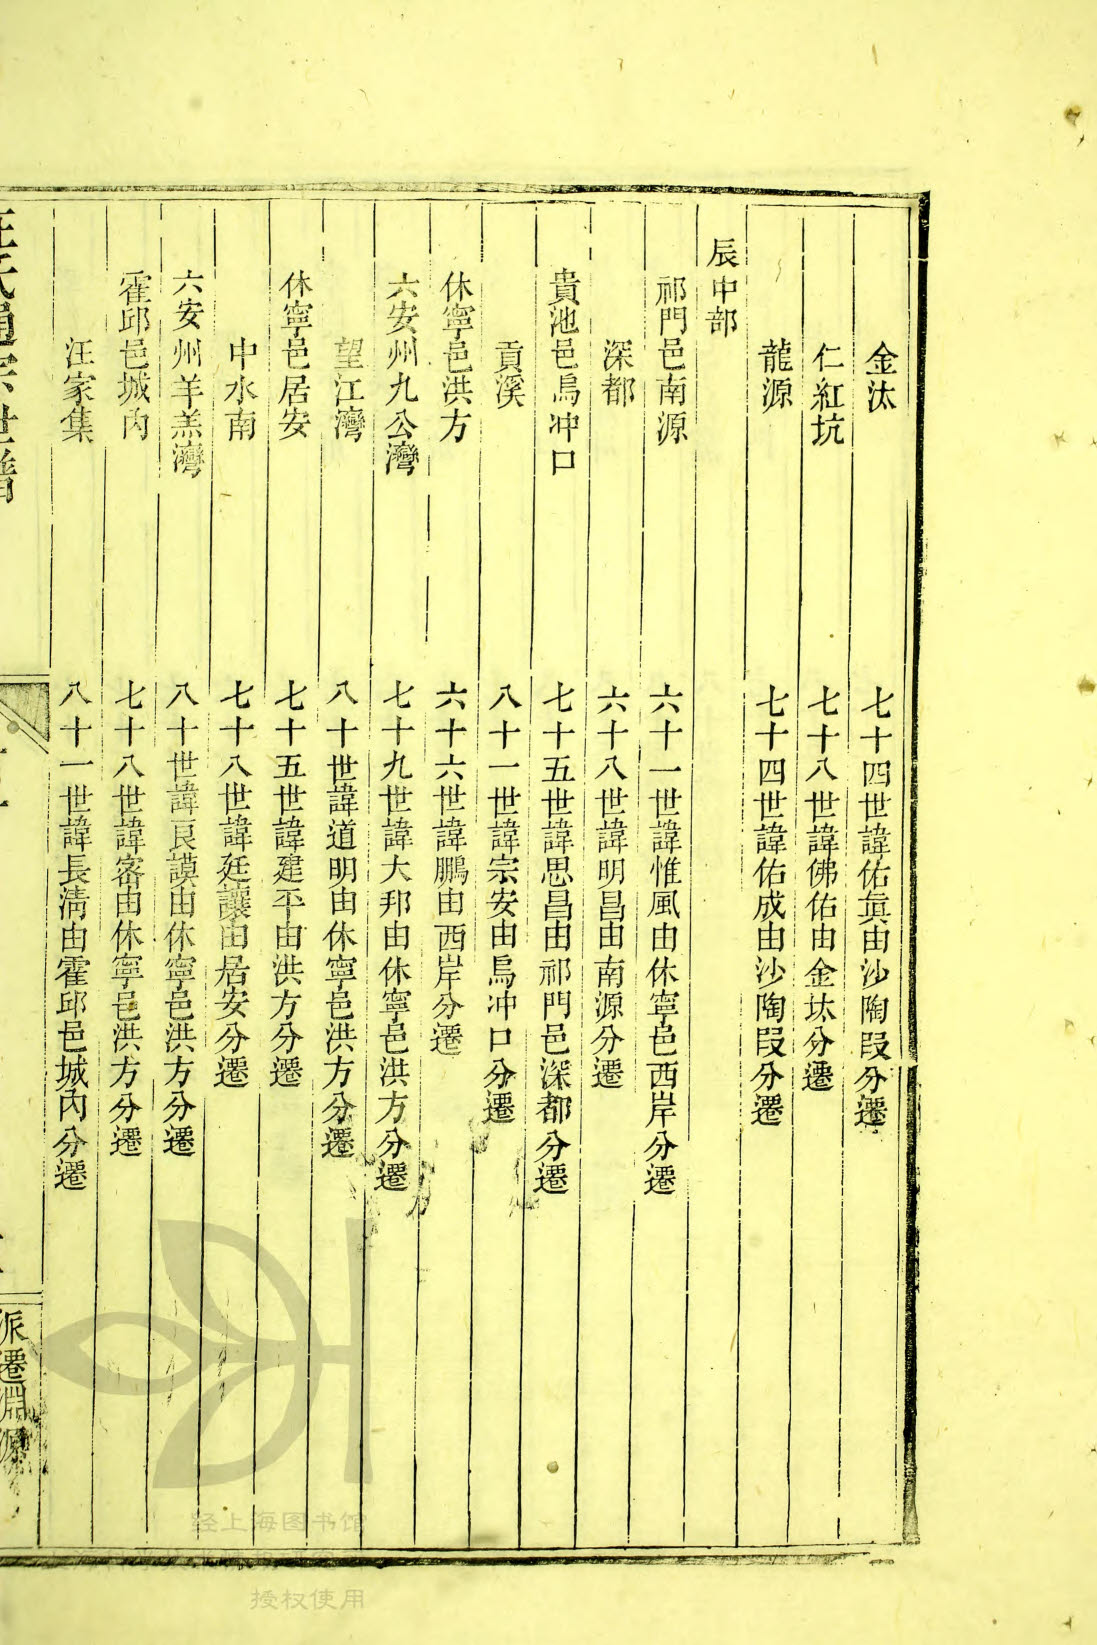 金汰　七十四世諱佑眞由沙陶段分遷
仁紅坑　七十八世諱佛佑由金汰分遷
龍源　七十四世諱佑成由沙陶段分遷
辰中部
祁門邑南源　六十一世諱惟風由休寧邑西岸分遷
深都　六十八世諱明昌由南源分遷
貴池邑烏冲口　七十五世諱思昌由祁門邑深都分遷
貢溪　八十一世諱宗安由烏冲口分遷
休寧邑洪方　六十六世諱鵬由西岸分遷
六安州九公灣　七十九世諱大邦由休寧邑洪方分遷
望江灣　八十世諱道明由休寧邑洪方分遷
休寧邑居安　七十五世諱建平由洪方分遷
中水南　七十八世諱廷讓由居安分遷
六安州羊羔灣　八十世諱良謨由休寧邑洪方分遷
霍邱邑城內　七十八世諱密由休寧邑洪方分遷
汪家集　八十一世諱長清由霍邱邑城內分遷
汪氏通宗世譜
派遷淵源
经上海图书馆
授权使用